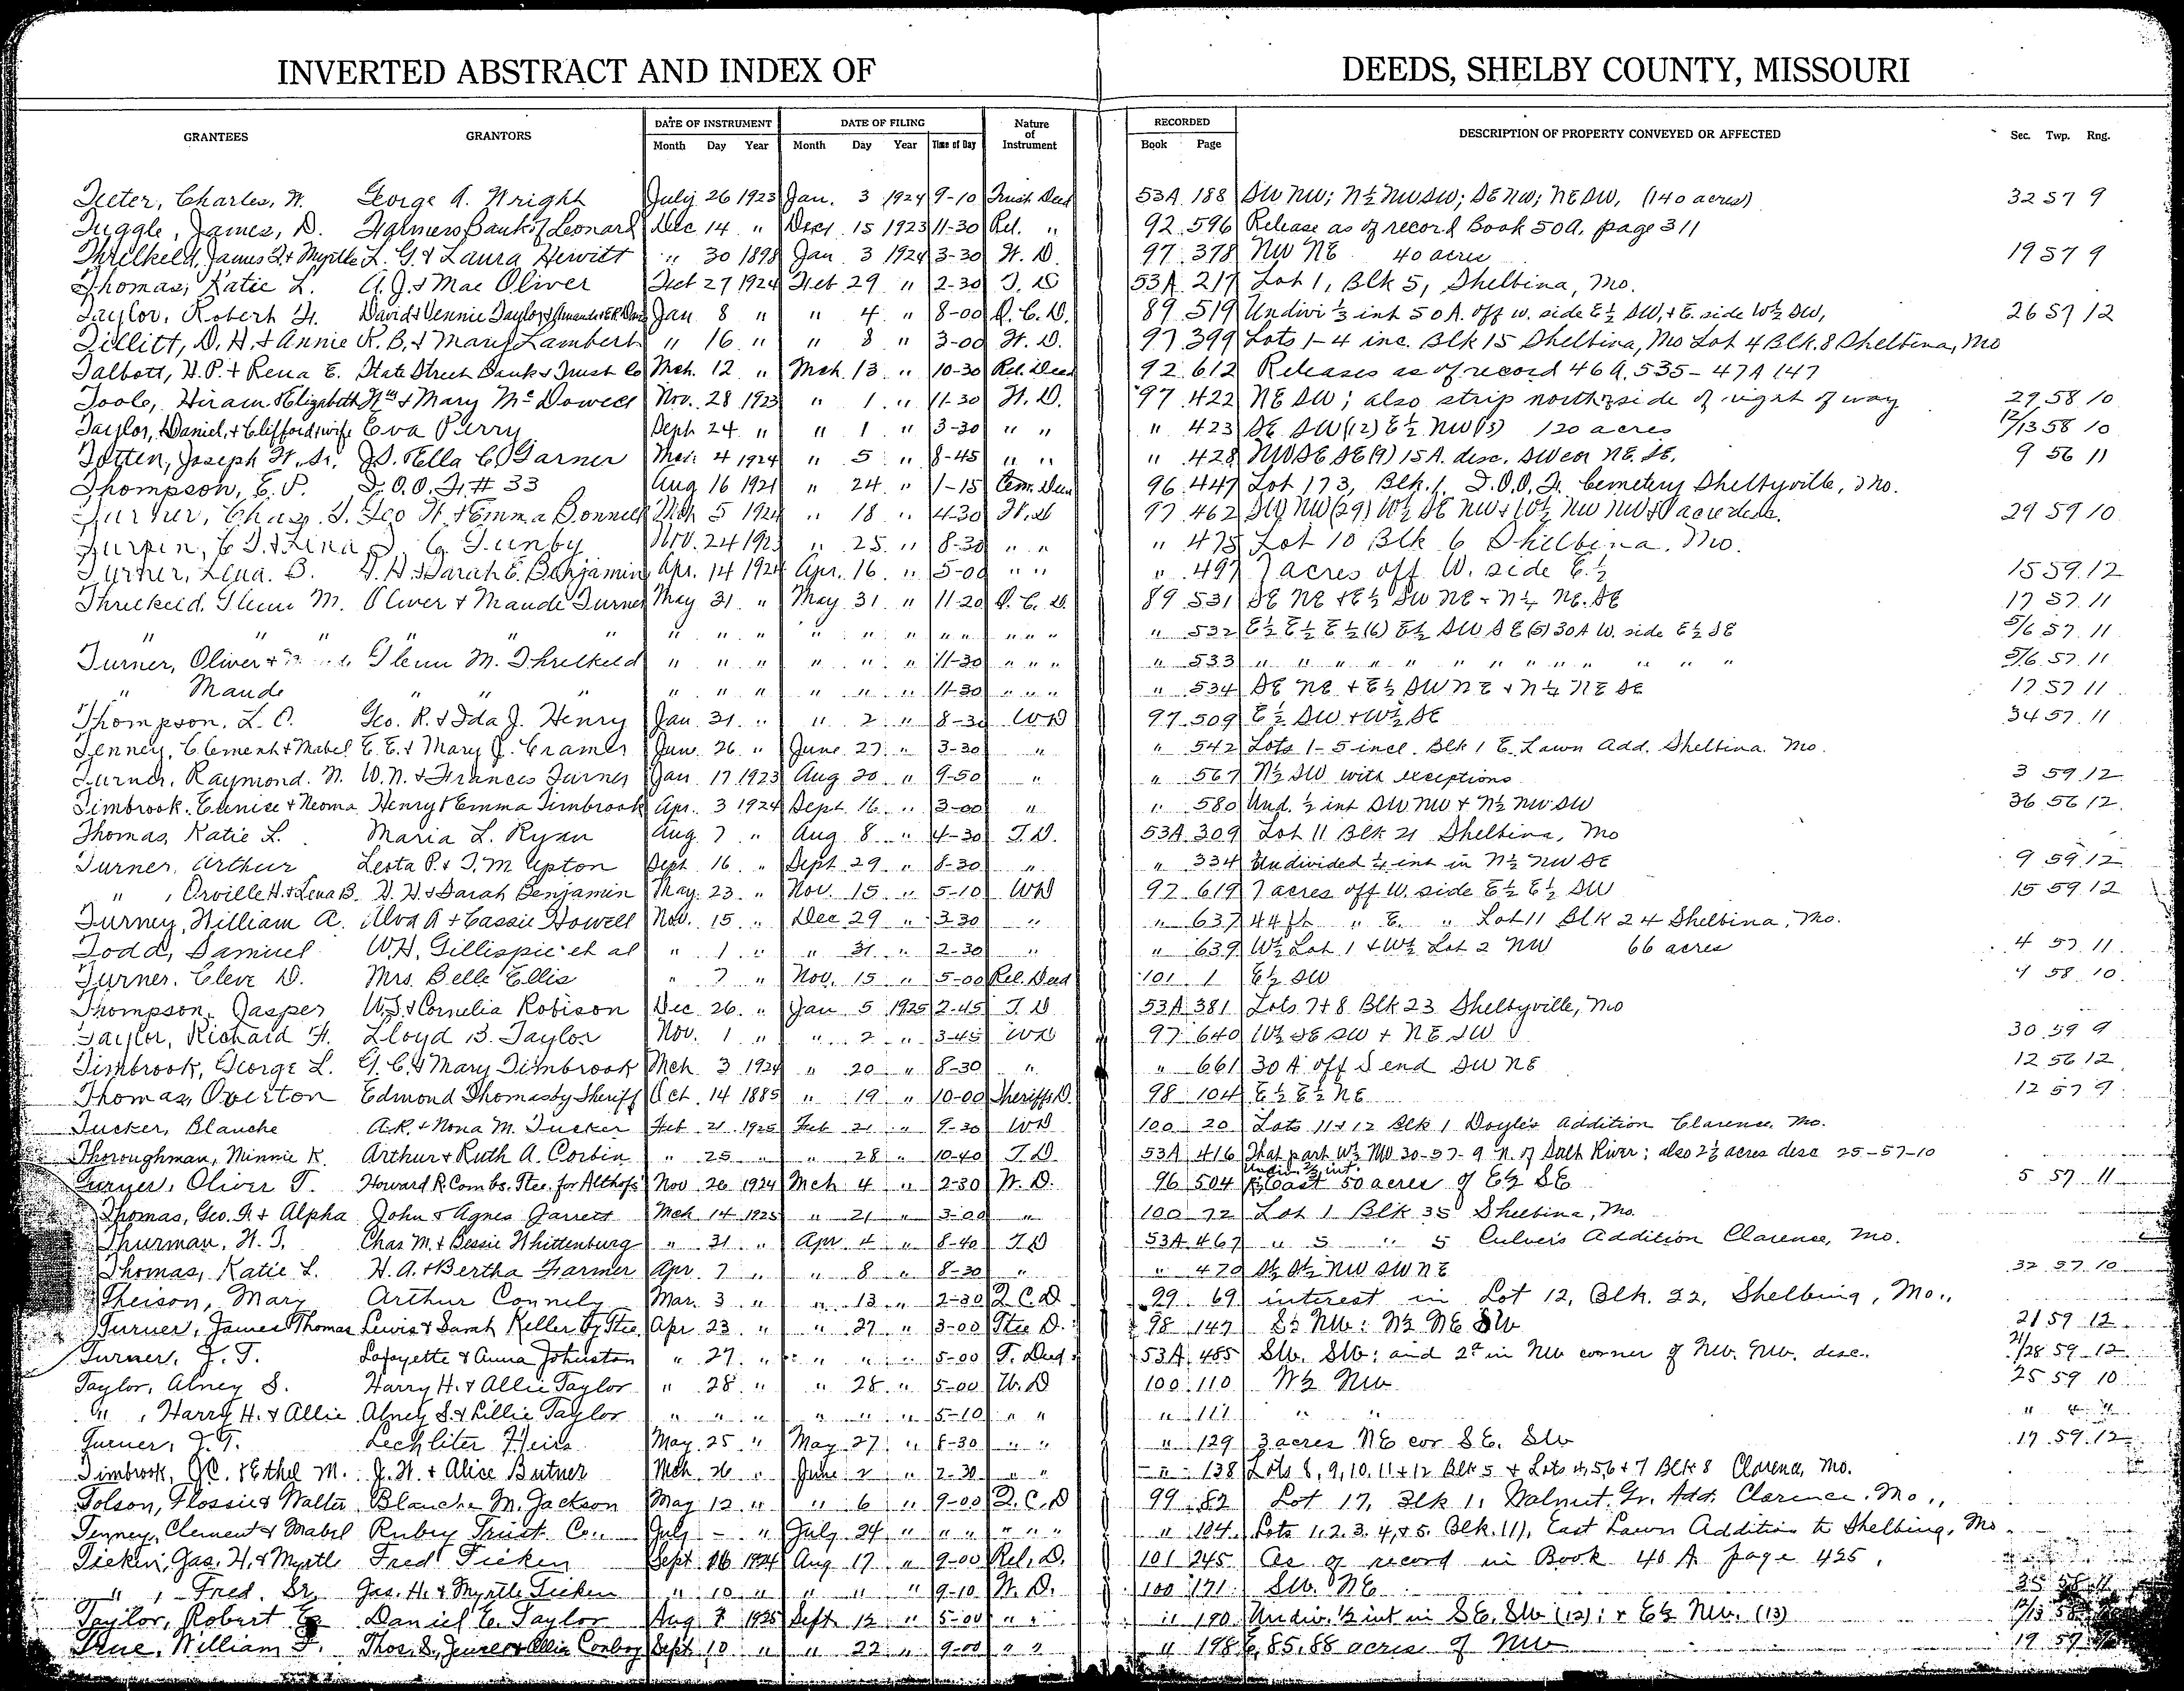 INVERTED ABSTRACT AND INDEX OF DEEDS, SHELBY COUNTY, MISSOURI
GRANTEES GRANTORS DATE OF INSTRUMENT Month Day Year DATE OF FILING Month Day Year Time of Day Nature of Instrument RECORDED Book Page DESCRIPTION OF PROPERTY CONVEYED OR AFFECTED Sec. Twp. Rng.
Teeter, Charles, W. George A. Wright July 26 1923 Jan. 3 1924 9-10 Trust Deed 53A 188 SW NW; N½ NW SW; SE NW; NE SW, (140 acres) 32 57 9
Tuggle, James, D. Farmers Bank of Leonard Dec 14 " Dec. 15 1923 11-30 Rel. " 92 596 Release as of record Book 50A, page 311
Threlkeld, James T. & Myrtle L. G. & Laura Hewitt " 30 1898 Jan 3 1924 3-30 W. D. 97 378 NW NE 40 acres 19 57 9
Thomas, Katie L. A. J. & Mae Oliver Feb 27 1924 Feb 29 " 2-30 T. D 53A 217 Lot 1, Blk 5, Shelbina, Mo.
Taylor, Robert H. David & Vennie Taylor & Amanda & E.R. Jan 8 " " 4 " 8-00 Q. C. D. 89 519 Undivi ⅓ int 50 A. off w. side E½ SW, & E. side W½ SW, 26 57 12
Tillitt, D. H. & Annie R. B. & Mary Lambert " 16 " " 8 " 3-00 W. D. 97 399 Lots 1-4 inc. Blk 15 Shelbina, Mo Lot 4 Blk. 8 Shelbina, Mo
Talbott, H. P. & Rena E. State Street Bank & Trust Co Mch. 12 " Mch 13 " 10-30 Rel. Deed 92 612 Releases as of record 46A. 535 - 47A 147
Toole, Hiram & Elizabeth Wm & Mary McDowell Nov. 28 1923 " 1 " 11-30 W. D. 97 422 NE SW; also strip north side of right of way 29 58 10
Taylor, Daniel, & Clifford & wife Eva Perry Sept 24 " " 1 " 3-30 " " " 423 SE SW (12) E½ NW (13) 120 acres 12/13 58 10
Totten, Joseph W. Sr. J. S. & Ella C. Garner Mar. 4 1924 " 5 " 8-45 " " " 428 NW SE SE (9) 15 A. desc. SW cor NE. SE. 9 56 11
Thompson, E. P. I. O. O. F. # 33 Aug 16 1921 " 24 " 1-15 Cem. Deed 96 447 Lot 173, Blk. 1, I.O.O.F. Cemetery Shelbyville, Mo.
Turner, Chas. T. Geo W. & Emma Bonnell Mch 5 1924 " 18 " 4-30 W. D 97 462 SW NW (29) W½ SE NW & W½ NW NW & acre desc. 29 59 10
Turpin, C. T. & Lina J. C. Gunby Nov. 24 1923 " 25 " 8-30 " " " 475 Lot 10 Blk 6 Shelbina, Mo.
Turner, Lena. B. H. H. & Sarah E. Benjamin Apr. 14 1924 Apr. 16 " 5-00 " " " 497 7 acres off W. side E.½ 15 59 12
Threlkeld, Glenn M. Oliver & Maude Turner May 31 " May 31 " 11-20 Q. C. D. 89 531 SE NE & E½ SW NE & N¼ NE. SE 17 57 11
" " " " " " " " " " " " " " " " " " " 532 E½ E½ E½ (6) E½ SW SE (5) 30 A W. side E½ SE 5/6 57 11
Turner, Oliver & Glenn M. Threlkeld " " " " " " 11-30 " " " " 533 " " " " " " " " " " " " " 5/6 57 11
" Maude " " " " " " " " " 11-30 " " " " 534 SE NE & E½ SW NE & N¼ NE SE 17 57 11
Thompson, L. C. Geo. R. & Ida J. Henry Jan 31 " " 2 " 8-30 WD 97 509 E½ SW & W½ SE 34 57 11
Tenney, Clement & Mabel E. E. & Mary J. Cramer June 26 " June 27 " 3-30 " " 542 Lots 1-5 incl. Blk 1 E. Lawn Add. Shelbina. Mo.
Turner, Raymond. N. W. N. & Frances Turner Jan 17 1923 Aug 20 " 9-50 " " 567 N½ SW with exceptions 3 59 12
Timbrook. Eunice & Neoma Henry & Emma Timbrook Apr. 3 1924 Sept 16 " 3-00 " " 580 Und. ½ int SW NW & N½ NW SW 36 56 12
Thomas, Katie L. Maria L. Ryan Aug 7 " Aug 8 " 4-30 T. D. 53A 309 Lot 11 Blk 21 Shelbina, Mo
Turner, Arthur Lesta P. & T. M. Upton Sept 16 " Sept 29 " 8-30 " " 334 Undivided ¼ int in N½ NW SE 9 59 12
" , Orville H. & Lena B. H. H. & Sarah Benjamin May 23 " Nov. 15 " 5-10 WD 97 619 7 acres off W. side E½ E½ SW 15 59 12
Turney, William A. Alva A & Cassie Howell Nov. 15 " Dec 29 " 3-30 " " 637 44 ft " E. " Lot 11 Blk 24 Shelbina, Mo.
Todd, Samuel W. H. Gillispie et al " 1 " " 31 " 2-30 " " 639 W½ Lot 1 & W½ Lot 2 NW 66 acres 4 57 11
Turner, Cleve D. Mrs. Belle Ellis " 7 " Nov. 15 " 5-00 Rel. Deed 101 1 E½ SW 4 58 10
Thompson, Jasper W. S. & Cornelia Robison Dec 26 " Jan 5 1925 2-45 T. D 53A 381 Lots 7 & 8 Blk 23 Shelbyville, Mo
Taylor, Richard H. Lloyd B. Taylor Nov. 1 " " 2 " 3-45 WD 97 640 W½ SE SW & NE SW 30 59 9
Timbrook, George L. G. C. & Mary Timbrook Mch 3 1924 " 20 " 8-30 " " 661 30 A off S end SW NE 12 56 12
Thomas, Overton Edmond Thomas by Sheriff Oct. 14 1885 " 19 " 10-00 Sheriffs D. 98 104 E½ E½ NE 12 57 9
Tucker, Blanche A. R. & Nona M. Tucker Feb 21 1925 Feb 21 " 9-30 WD 100 20 Lots 11 & 12 Blk 1 Doyle's Addition Clarence, Mo.
Thoroughman, Minnie K. Arthur & Ruth A. Corbin " 25 " " 28 " 10-40 T. D. 53A 416 That part W½ NW 30-57-9 N. of Salt River; also 2½ acres desc 25-57-10
Turner, Oliver T. Howard R. Combs. Stee. for Althofs Nov 26 1924 Mch 4 " 2-30 W. D. 96 504 Undiv. ⅔ int. East 50 acres of E½ SE 5 57 11
Thomas, Geo. A. & Alpha John & Agnes Garrett Mch 14 1925 " 21 " 3-00 " 100 72 Lot 1 Blk 35 Shelbina, Mo.
Thurman, W. T. Chas M. & Bessie Whittenburg " 31 " Apr 4 " 8-40 T. D 53A 467 " 5 " 5 Culver's Addition Clarence, Mo.
Thomas, Katie L. H. A. & Bertha Farmer Apr 7 " " 8 " 8-30 " " 470 S½ S½ NW SW NE 32 57 10
Theison, Mary Arthur Connely Mar. 3 " " 13 " 2-30 Q. C. D 99 69 interest in Lot 12, Blk. 22, Shelbina, Mo.,
Turner, James Thomas Lewis & Sarah Keller by Stee. Apr 23 " " 27 " 3-00 Stee D. 98 147 S½ NW: N½ NE SW 21 59 12
Turner, J. T. Lafayette & Anna Johnston " 27 " " " " 5-00 T. Deed 53A 485 SW. SW; and 2a in NW corner of NW. NW. desc. 21/28 59 12
Taylor, Abney S. Harry H. & Allie Taylor " 28 " " 28 " 5-00 W. D 100 110 W½ NW 25 59 10
" , Harry H. & Allie Abney S. & Lillie Taylor " " " " " " 5-10 " " " 111 " " " " "
Turner, J. T. Lechliter Heirs May 25 " May 27 " 8-30 " " " 129 3 acres NE cor SE. SW 17 59 12
Timbrook, J C. & Ethel M. J. W. & Alice Butner Mch 26 " June 2 " 2-30 " " " 138 Lots 8, 9, 10, 11 & 12 Blk 5 & Lots 4, 5, 6 & 7 Blk 8 Clarence, Mo.
Tolson, Flossie & Walter Blanche M. Jackson May 12 " " 6 " 9-00 Q. C. D 99 82 Lot 17, Blk 1, Walnut Gr. Add. Clarence, Mo.,
Tenney, Clement & Mabel Rubey Trust Co., July - " July 24 " " " " " " " 104 Lots 1, 2, 3, 4, & 5 Blk. 11, East Lawn Addition to Shelbina, Mo.
Ticken, Jas. H. & Myrtle Fred Ticken Sept 16 1924 Aug 17 " 9-00 Rel. D. 101 245 As of record in Book 40 A page 425.
" , Fred. Sr. Jas. H. & Myrtle Ticken " 10 " " " " 9-10 W. D. 100 171 SW. NE 35 58 11
Taylor, Robert E Daniel E. Taylor Aug 7 1925 Sept 12 " 5-00 " " " 190 Undiv. ½ int in SE. SW (12); & E½ NW. (13) 12/13 58
True, William F. Thos. S. & Ollie Conboy Sept 10 " " 22 " 9-00 " " " 198 E, 85.88 acres of NW 19 59